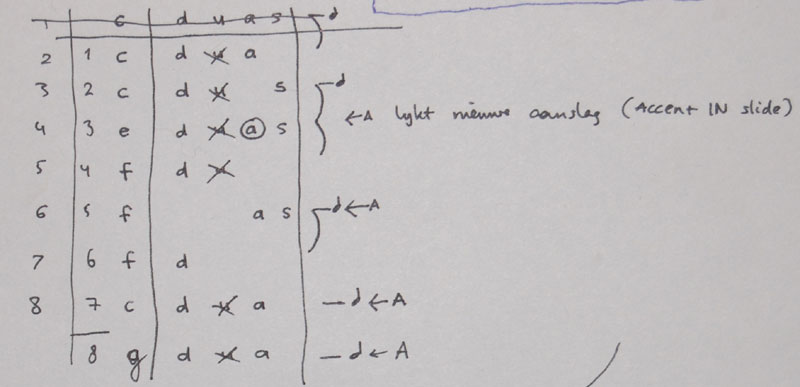 1 c d u a s d
2 1 c d u a
3 2 c d u s d
4 3 e d u a s ←A lykt nieuwe aanslag (Accent IN slide)
5 4 f d u
6 5 f a s d←A
7 6 f d
8 7 c d u a – d←A
8 g d u a – d←A